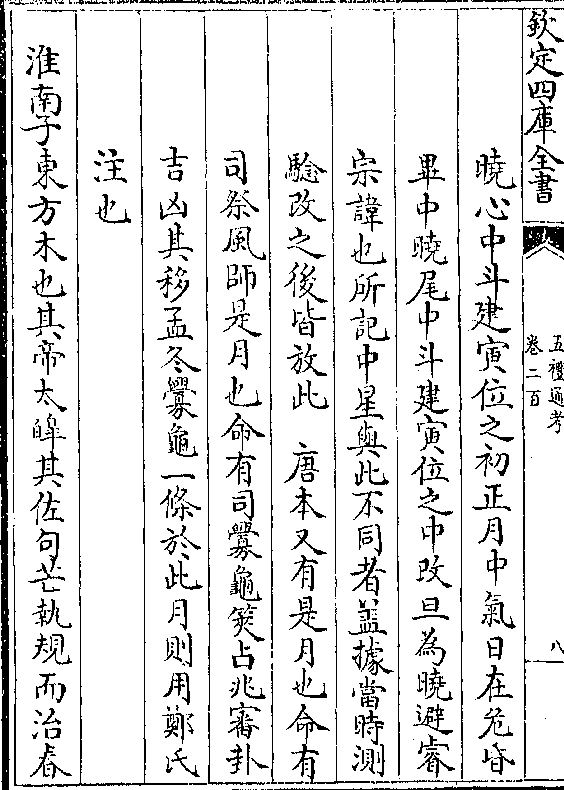 欽定四庫全書
五禮通考
卷二百
八
曉心中斗建寅位之初正月中氣日在危昏
畢中曉尾中斗建寅位之中改旦為曉避睿
宗諱也所記中星與此不同者蓋據當時測
驗改之後皆放此　唐本又有是月也命有
司祭風師是月也命有司釁龜筴占兆審卦
吉凶其移孟冬釁龜一條於此月則用鄭氏
注也
淮南子東方木也其帝太皥其佐句芒執規而治春